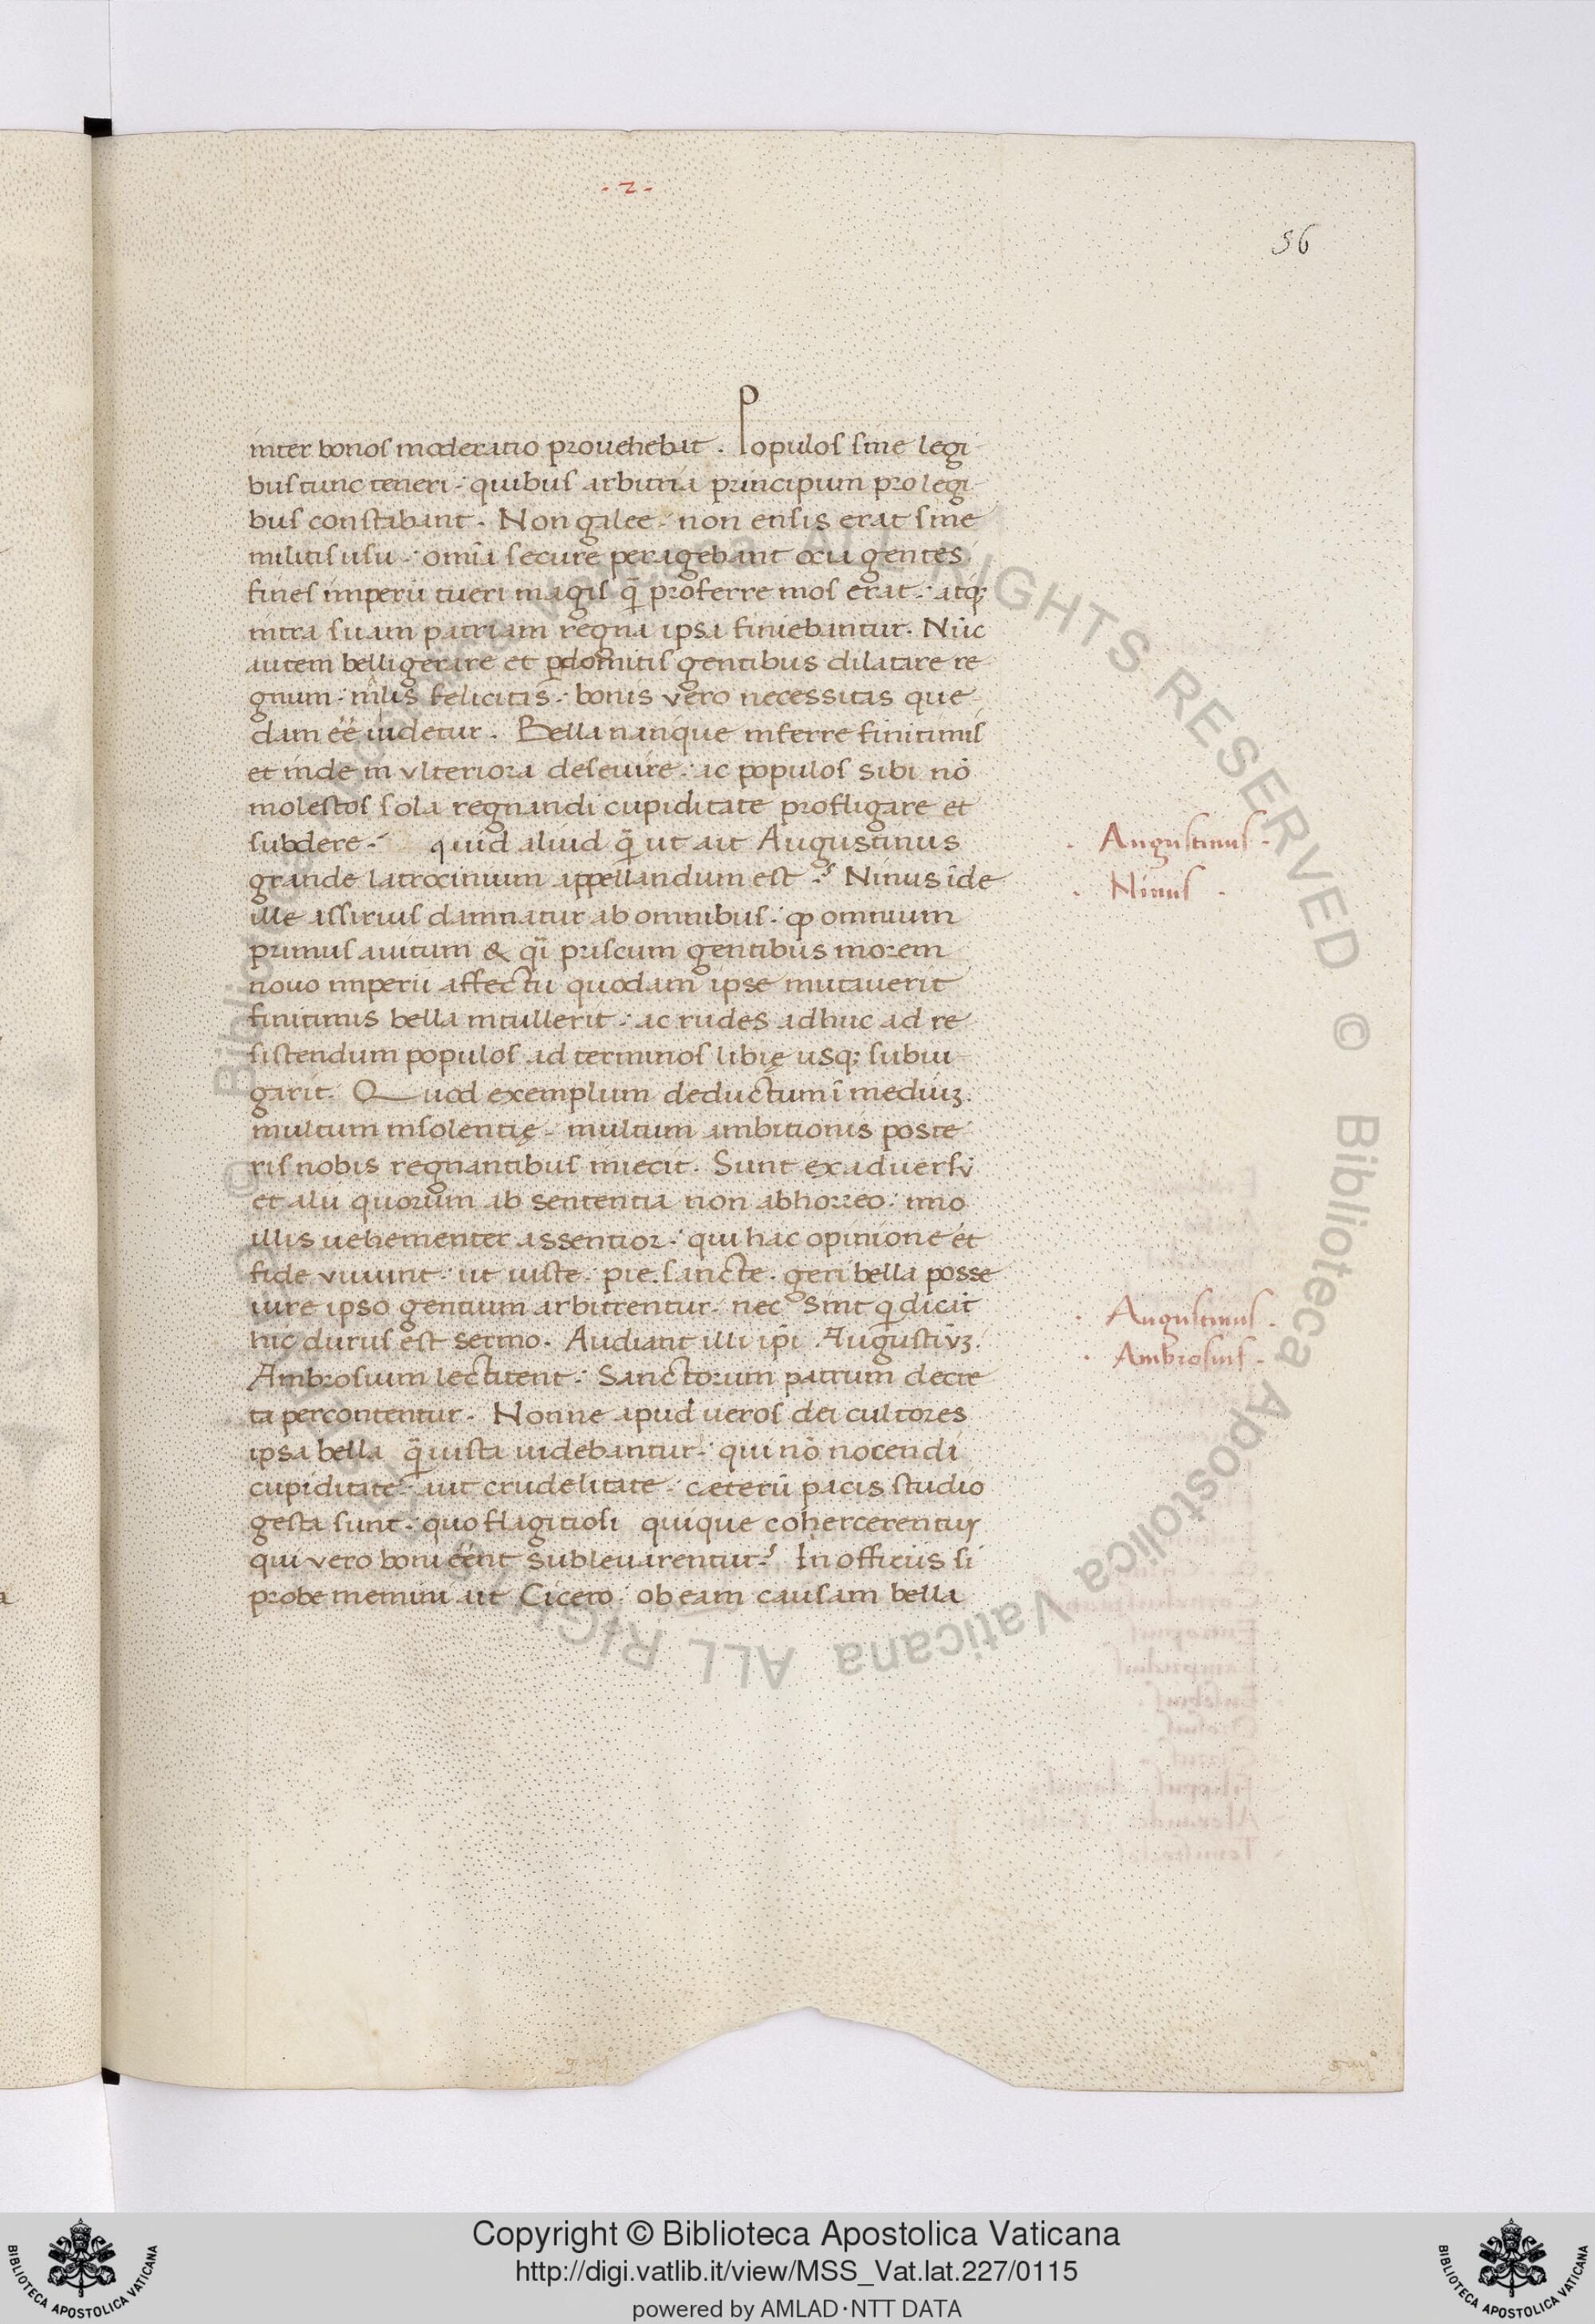 . 2 .
56
inter bonos moderatio prouehebat . Populos sine legi
bus tunc teneri : quibus arbitria principum pro legi
bus constabant . Non galee . non ensis erat sine
militis usu : omīa secure peragebant ocii gentes .
fines imperii tueri magis q̄ proferre mos erat : atq;
intra suam patriam regna ipsa finiebantur . Nūc
autem belligerare et pdomitis gentibus dilatare re
gnum : mlis felicitas : bonis vero necessitas que
dam eē uidetur . Bella nanque inferre finitimis
et inde in vlteriora deseuire : ac populos sibi nō
molestos sola regnandi cupiditate profligare et
subdere : quid aliud q̄ ut ait Augustinus
grande latrocinium appellandum est ? Ninus īde
ille assirius damnatur ab omnibus : ꝙ omnium
primus auitum & q̄i priscum gentibus morem
nouo imperii affectu quodam ipse mutauerit
finitimis bella intullerit : ac rudes adhuc ad re
sistendum populos ad terminos libię usq; subiu
garit . Quod exemplum deductum ī mediuꝫ .
multum insolentię . multum ambitionis poste
ris nobis regnantibus iniecit . Sunt ex aduerso
et alii quorum ab sententia non abhorreo : imo
illis uehementer assentior : qui hac opinione et
fide viuunt : ut iuste . pie . sancte . geri bella posse
iure ipso gentium arbitrentur . nec sint q̇ dicāt
hic durus est sermo . Audiant illi ip̄i Augustinuꝫ .
Ambrosium lectitent : Sanctorum patrum decre
ta percontentur . Nonne apud ueros dei cultores
ipsa bella q̄ iusta uidebantur : qui nō nocendi
cupiditate : aut crudelitate : ceterū pacis studio
gesta sunt : quo flagitiosi quique cohercerentur
qui vero boni eēnt subleuarentur ? In officiis si
probe memini ait Cicero : ob eam causam bella
. Augustinus .
. Ninus .
. Augustinus .
. Ambrosius .
© Biblioteca Apostolica Vaticana ALL RIGHTS RESERVED
Copyright © Biblioteca Apostolica Vaticana
http://digi.vatlib.it/view/MSS_Vat.lat.227/0115
powered by AMLAD·NTT DATA
BIBLIOTECA APOSTOLICA VATICANA
BIBLIOTECA APOSTOLICA VATICANA